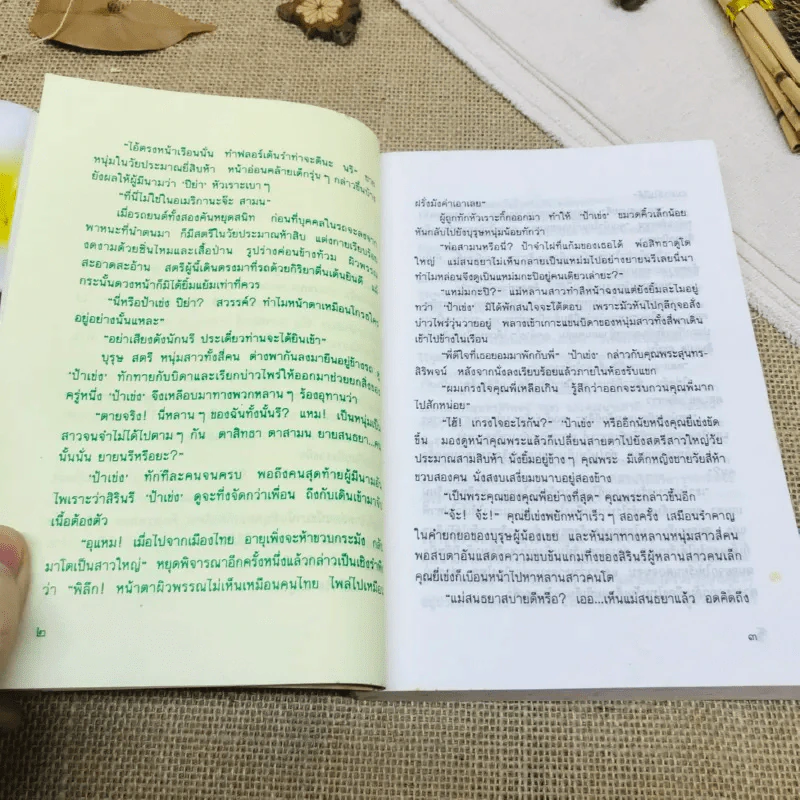 "ไอ้ตรงหน้าเรือนนั่น ทำฟลอร์เต้นรำท่าจะดีนะ นรี"
หนุ่มในวัยประมาณยี่สิบห้า หน้าอ่อนคล้ายเด็กรุ่นๆ กล่าวขึ้น
ยังผลให้ผู้มีนามว่า 'ปิย่า' หัวเราะเบาๆ
"ที่นี่ไม่ใช่ในอเมริกานะจ๊ะ สามน"
เมื่อรถยนต์ทั้งสองคันหยุดสนิท ก่อนที่บุคคลในรถจะลงจาก
พาหนะที่นำตนมา ก็มีสตรีในวัยประมาณห้าสิบ แต่งกายเรียบร้อย
งดงามด้วยซิ่นไหมและเสื้อป่าน รูปร่างค่อนข้างท้วม ผิวพรรณ
สะอาดสะอ้าน สตรีผู้นี้เดินตรงมาที่รถด้วยกิริยาตื่นเต้นยินดี แม้
กระนั้นดวงหน้าก็มิได้ยิ้มแย้มเท่าที่ควร
"นี่หรือป้าเข่ง ปิย่า? สวรรค์? ทำไมหน้าตาเหมือนโกรธใคร
อยู่อย่างนั้นแหละ"
"อย่าเสียงดังนักนรี ประเดี๋ยวท่านจะได้ยินเข้า"
บุรุษ สตรี หนุ่มสาวทั้งสี่คน ต่างพากันลงมายืนอยู่ข้างรถ
'ป้าเข่ง' ทักทายกับบิดาและเรียกบ่าวไพร่ให้ออกมาช่วยยกสิ่งของ
ครู่หนึ่ง 'ป้าเข่ง' จึงเหลือบมาทางพวกหลานๆ ร้องอุทานว่า
"ตายจริง! นี่หลานๆ ของฉันทั้งนั้นรึ? แหม! เป็นหนุ่มเป็น
สาวจนจำไม่ได้ไปตามๆ กัน ตาสิทธา ตาสามน ยายสนธยา...
นั้นนั่น ยายนรีหรือยะ?"
'ป้าเข่ง' ทักทีละคนจนครบ พอถึงคนสุดท้ายผู้มีนามอัน
ไพเราะว่าสิรินรี 'ป้าเข่ง' ดูจะทึ่งจัดกว่าเพื่อน ถึงกับเดินเข้ามาจับ
เนื้อต้องตัว
"อุแหม! เมื่อไปจากเมืองไทย อายุเพิ่งจะห้าขวบกระมัง กลับ
มาโตเป็นสาวใหญ่" หยุดพิจารณาอีกครั้งหนึ่งแล้วกล่าวเป็นเชิงรำพึง
ว่า "พิลึก! หน้าตาผิวพรรณไม่เห็นเหมือนคนไทย ไพล่ไปเหมือน
๒
ฝรั่งมังค่าเอาเลย"
ผู้ถูกทักหัวเราะกิ๊กออกมา ทำให้ 'ป้าเข่ง' ขมวดคิ้วเล็กน้อย
หันกลับไปยังบุรุษหนุ่มน้อยทักว่า
"พ่อสามนหรือนี่? ป้าจำไฝที่แก้มของเธอได้ พ่อสิทธาดูโต
ใหญ่ แม่สนธยาไม่เห็นกลายเป็นแหม่มไปอย่างยายนรีเลยนี่นา
ทำไมหล่อนจึงดูเป็นแหม่มกะปิอยู่คนเดียวเล่ายะ?"
"แหม่มกะปิ?" แม่หลานสาวทำสีหน้าฉงนแต่ยังยิ้มละไมอยู่
ทว่า 'ป้าเข่ง' มิได้พักสนใจจะโต้ตอบ เพราะมัวหันไปกุลีกุจอสั่ง
บ่าวไพร่วุ่นวายอยู่ พลางเข้าเกาะแขนบิดาของหนุ่มสาวทั้งสี่พาเดิน
เข้าไปข้างในเรือน
"พี่ดีใจที่เธอยอมมาพักกับพี่" 'ป้าเข่ง' กล่าวกับคุณพระสุนทร-
สิริพจน์ หลังจากนั่งลงเรียบร้อยแล้วภายในห้องรับแขก
"ผมเกรงใจคุณพี่เหลือเกิน รู้สึกว่าออกจะรบกวนคุณพี่มาก
ไปสักหน่อย"
"ไฮ้! เกรงใจอะไรกัน?" 'ป้าเข่ง' หรืออีกนัยหนึ่งคุณยี่เข่งขัด
ขึ้น มองดูหน้าคุณพระแล้วก็เปลี่ยนสายตาไปยังสตรีสาวใหญ่วัย
ประมาณสามสิบห้า นั่งยิ้มอยู่ข้างๆ คุณพระ มีเด็กหญิงชายวัยสี่ห้า
ขวบสองคน นั่งสงบเสงี่ยมขนาบอยู่สองข้าง
"เป็นพระคุณของคุณพี่อย่างที่สุด" คุณพระกล่าวขึ้นอีก
"จ้ะ! จ้ะ!" คุณยี่เข่งพยักหน้าเร็วๆ สองครั้ง เสมือนรำคาญ
ในคำยกยอของบุรุษผู้น้องเขย และหันมาทางหลานหนุ่มสาวสี่คน
พอสบตาอันแสดงความขบขันแกมทึ่งของสิรินรีผู้หลานสาวคนเล็ก
คุณยี่เข่งก็เบือนหน้าไปหาหลานสาวคนโต
"แม่สนธยาสบายดีหรือ? เออ...เห็นแม่สนธยาแล้ว อดคิดถึง
๓